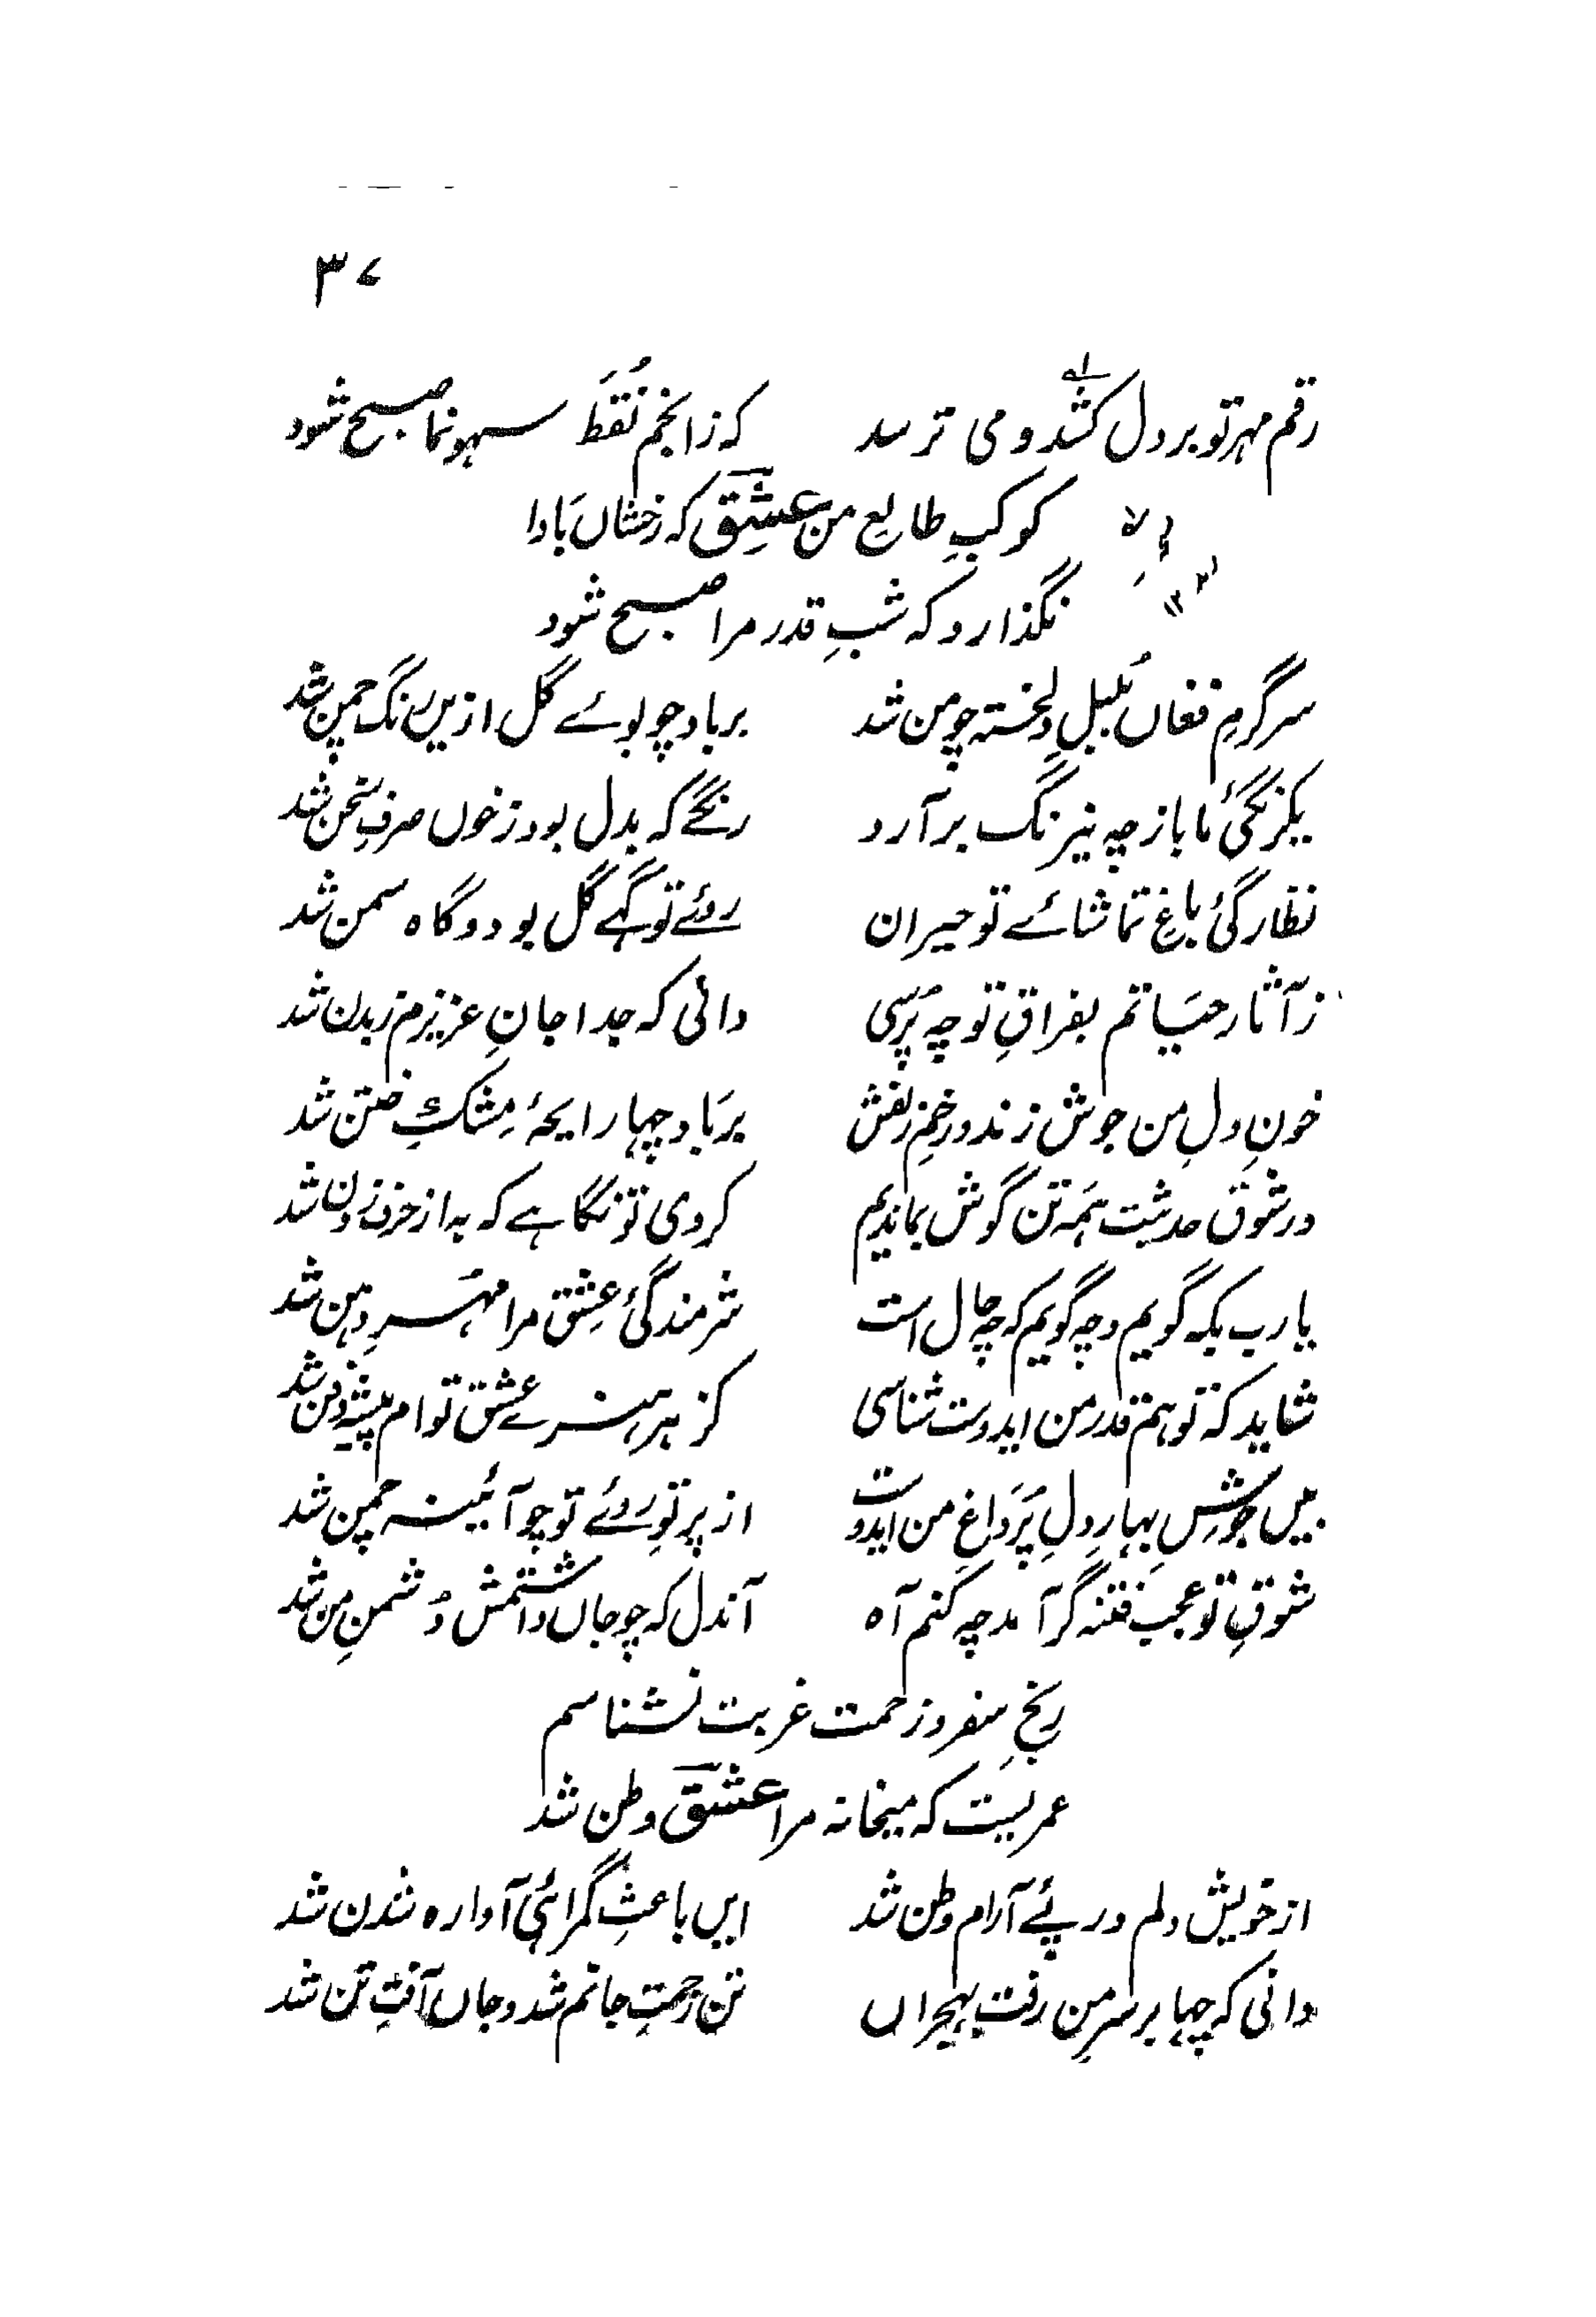 ۳۷
رقم مہر تو بر دل کشد و می ترسد کہ ز انجم نُقَط سہو نما صبح شود
کوکبِ طالعِ من عشِق کہ رخشاں بَادا
نگذارد کہ شبِ قدر مرا صبح شود
سرگرمِ فغاں بُلبلِ دلخستہ چو من شد برباد چو بوئے گل ازیں رنگ چمن شد
یکرنگیٔ ما باز چہ نیرنگ بر آرد رنگے کہ بدل بود ز خوں صرفِ سخن شد
نظارگیٔ باغِ تماشائے تو حیران روئے تو گہے گل بود و گاہ سمن شد
ز آثار حیَاتم بفراقِ تو چہ پُرسی دانی کہ جدا جانِ عزیزم ز بدن شد
خونِ دلِ من جوش زند در خمِ زلفش بربَاد چہا رایحۂ مِشکِ ختن شد
در شوقِ حدیثت ہمَہ تن گوش بماندیم کردی تو نگاہے کہ بہ از حرف زدن شد
یارب بکہ گویم و چہ گویم کہ چہ حال است شرمندگیٔ عِشق مرا مہُرِ دہن شد
شاید کہ تو ہم قدر من ایدوست شناسی کز ہر ہنرے عشق تو ام پیشہ و فن شد
بیں جوشِ بہارِ دلِ پُرداغِ من ایدوست از پرتوِ روئے تو چو آئینہ چمن شد
شوقِ تو عجب فتنہ گر آمد چہ کنم آہ آندل کہ چو جاں داشتمش دُشمنِ من شد
رنجِ سفر و زحمت غربت نشناسم
عمریست کہ میخانہ مرا عشق وطن شد
از خویش دلم درپئے آرام وطن شد ایں باعثِ گمراہیٔ آوارہ شدن شد
دانی کہ چہا بر سرِ من رفت بہجراں تن زحمتِ جانم شد و جاں آفتِ تن شد